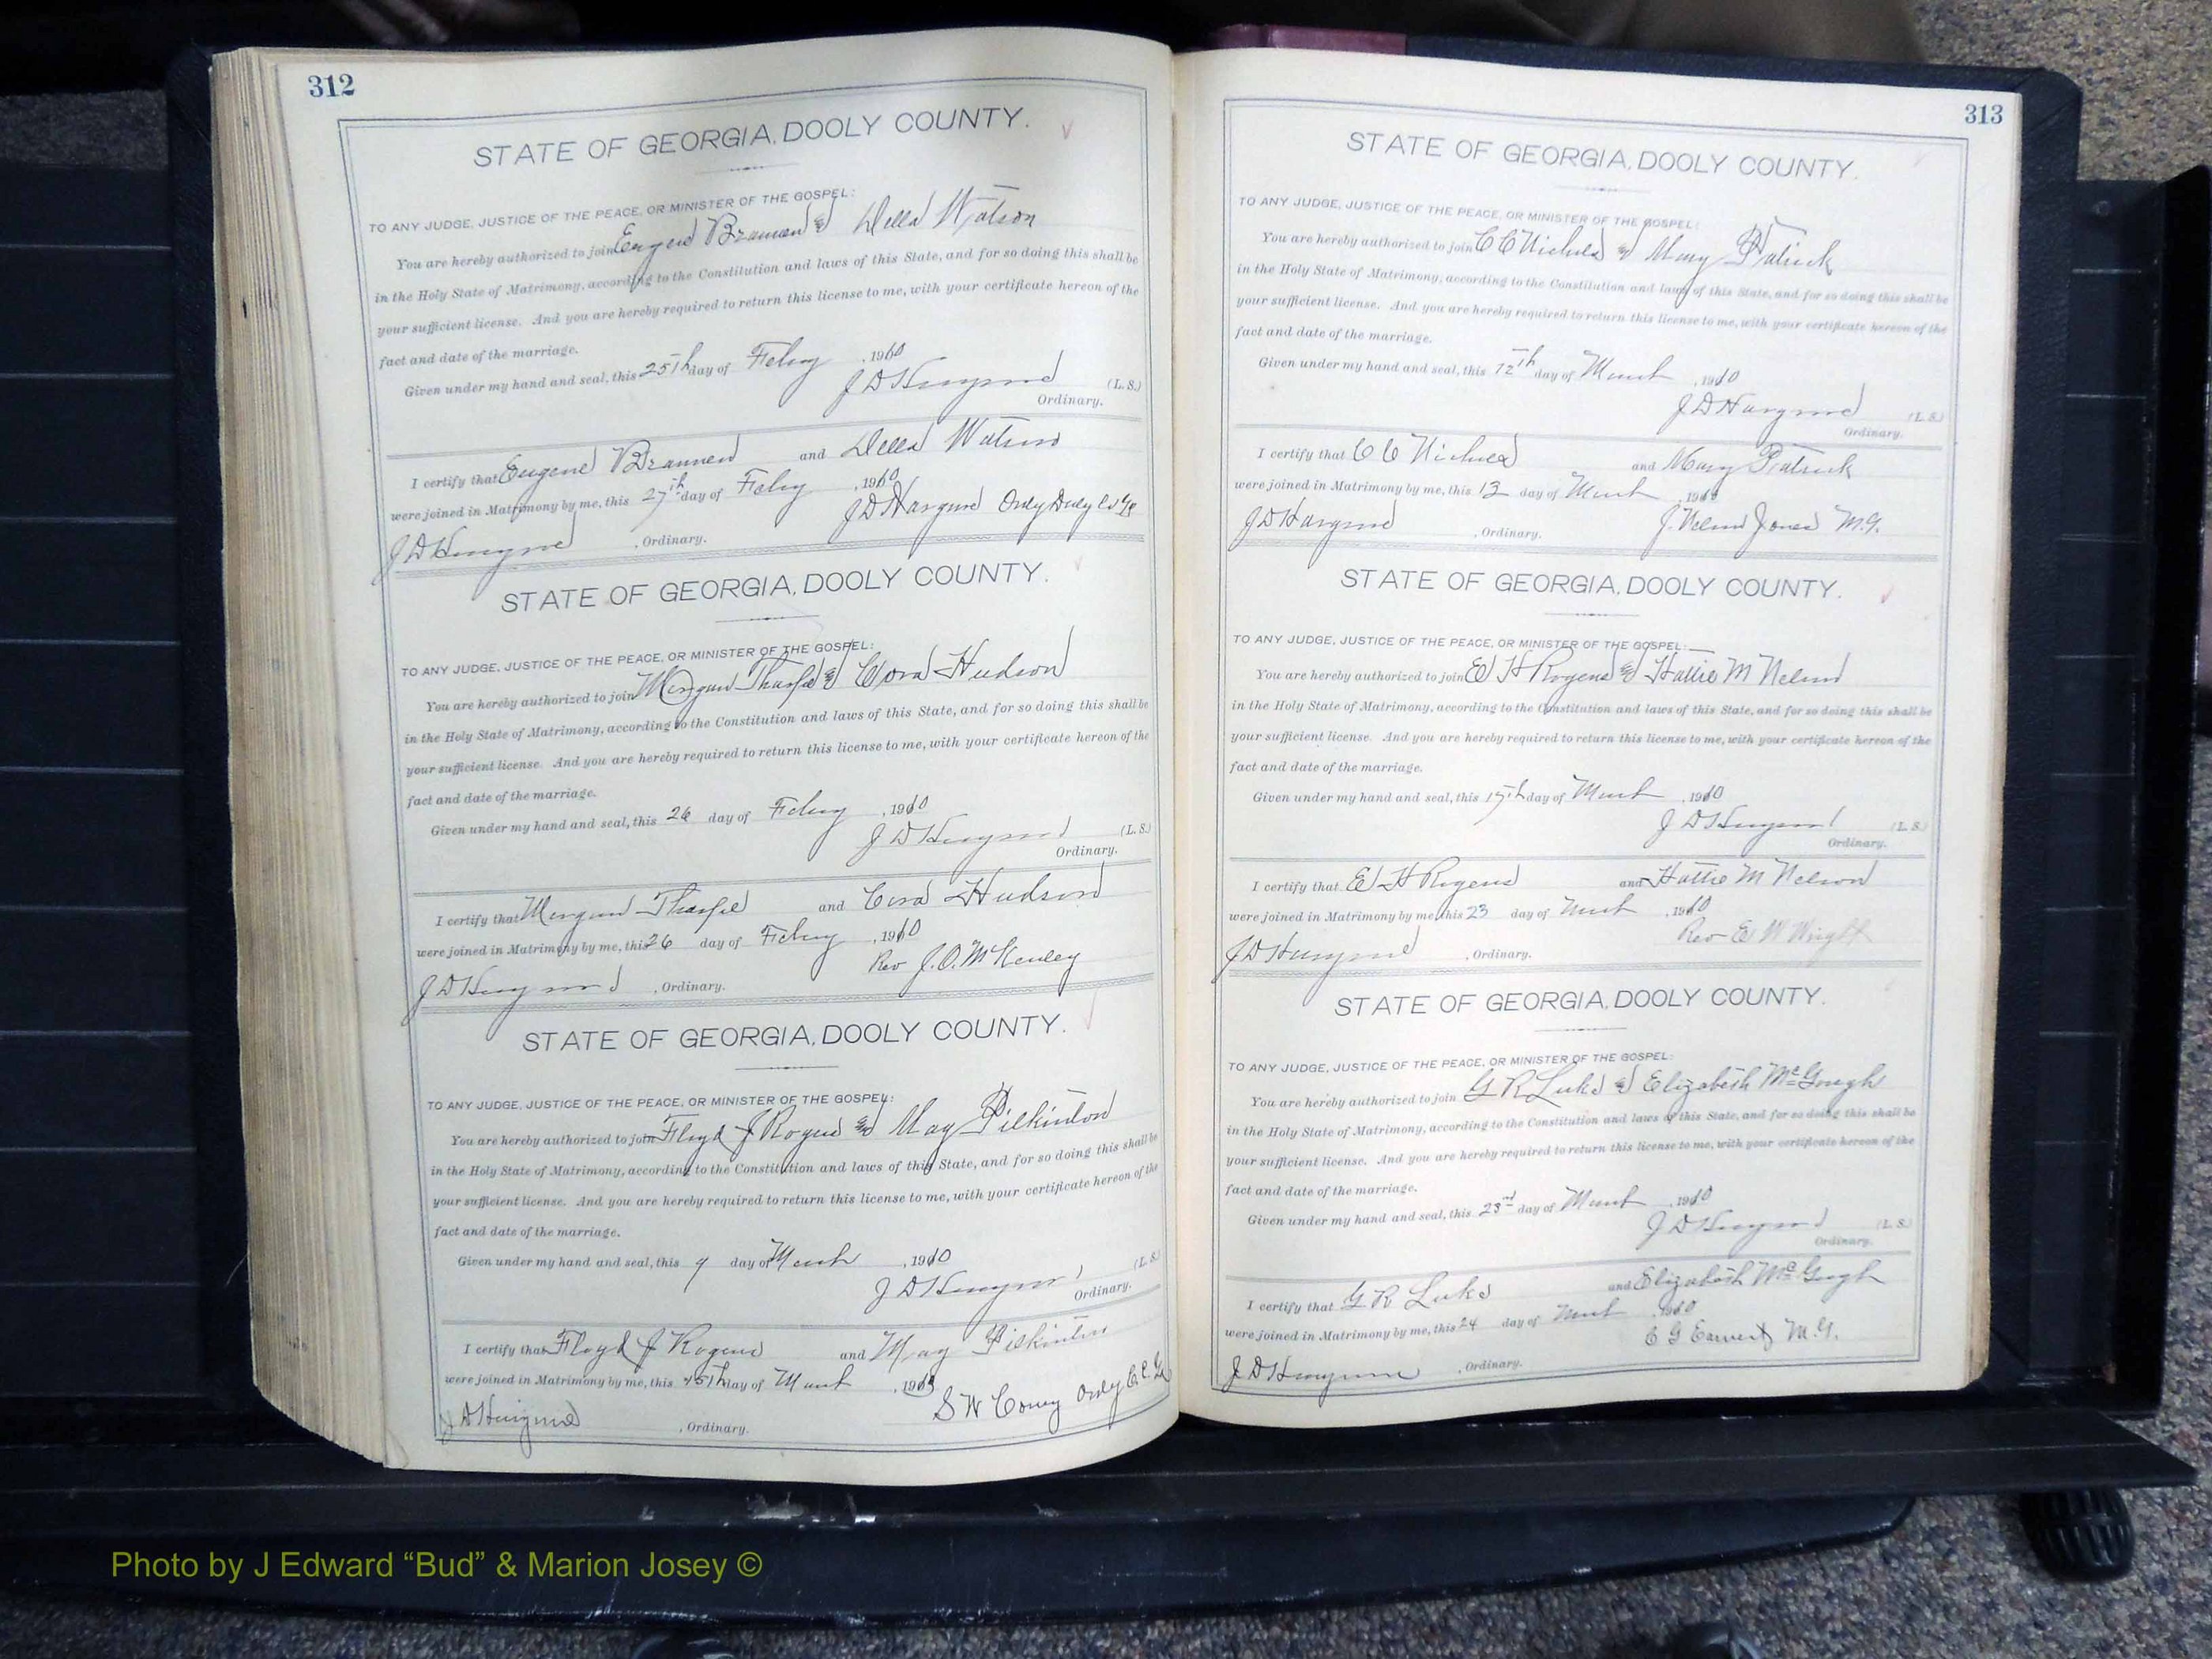 312
STATE OF GEORGIA, DOOLY COUNTY.
TO ANY JUDGE, JUSTICE OF THE PEACE, OR MINISTER OF THE GOSPEL:
You are hereby authorized to join Eugene Brannen & Della Watson
in the Holy State of Matrimony, according to the Constitution and laws of this State, and for so doing this shall be
your sufficient license. And you are hereby required to return this license to me, with your certificate hereon of the
fact and date of the marriage.
Given under my hand and seal, this 25th day of Feby, 1910
J D Hargrove (L. S.)
Ordinary.
I certify that Eugene Brannen and Della Watson
were joined in Matrimony by me, this 27th day of Feby, 1910
J D Hargrove Ordy Dooly Co Ga
J D Hargrove, Ordinary.
STATE OF GEORGIA, DOOLY COUNTY.
TO ANY JUDGE, JUSTICE OF THE PEACE, OR MINISTER OF THE GOSPEL:
You are hereby authorized to join Morgan Tharpe & Cora Hudson
in the Holy State of Matrimony, according to the Constitution and laws of this State, and for so doing this shall be
your sufficient license. And you are hereby required to return this license to me, with your certificate hereon of the
fact and date of the marriage.
Given under my hand and seal, this 26 day of Feby, 1910
J D Hargrove (L. S.)
Ordinary.
I certify that Morgan Tharpe and Cora Hudson
were joined in Matrimony by me, this 26 day of Feby, 1910
Rev J. O. McKenley
J D Hargrove, Ordinary.
STATE OF GEORGIA, DOOLY COUNTY.
TO ANY JUDGE, JUSTICE OF THE PEACE, OR MINISTER OF THE GOSPEL:
You are hereby authorized to join Floyd J Rogers & May Pilkinton
in the Holy State of Matrimony, according to the Constitution and laws of this State, and for so doing this shall be
your sufficient license. And you are hereby required to return this license to me, with your certificate hereon of the
fact and date of the marriage.
Given under my hand and seal, this day of March, 1910
J D Hargrove (L. S.)
Ordinary.
I certify that Floyd J Rogers and May Pilkinton
were joined in Matrimony by me, this day of March
S W Coney Ordy C. C. Ga
J D Hargrove, Ordinary.
313
STATE OF GEORGIA, DOOLY COUNTY.
TO ANY JUDGE, JUSTICE OF THE PEACE, OR MINISTER OF THE GOSPEL:
You are hereby authorized to join C C Nichols & Mary Patrick
in the Holy State of Matrimony, according to the Constitution and laws of this State, and for so doing this shall be
your sufficient license. And you are hereby required to return this license to me, with your certificate hereon of the
fact and date of the marriage.
Given under my hand and seal, this 12th day of March, 1910
J D Hargrove (L. S.)
Ordinary.
I certify that C C Nichols and Mary Patrick
were joined in Matrimony by me, this 13 day of March, 1910
J. Nelson Jones M.G.
J D Hargrove, Ordinary.
STATE OF GEORGIA, DOOLY COUNTY.
TO ANY JUDGE, JUSTICE OF THE PEACE, OR MINISTER OF THE GOSPEL:
You are hereby authorized to join E H Rogers & Hattie M Nelson
in the Holy State of Matrimony, according to the Constitution and laws of this State, and for so doing this shall be
your sufficient license. And you are hereby required to return this license to me, with your certificate hereon of the
fact and date of the marriage.
Given under my hand and seal, this 15th day of March, 1910
J D Hargrove (L. S.)
Ordinary.
I certify that E H Rogers and Hattie M Nelson
were joined in Matrimony by me, this 23 day of March, 1910
Rev E W Wright
J D Hargrove, Ordinary.
STATE OF GEORGIA, DOOLY COUNTY.
TO ANY JUDGE, JUSTICE OF THE PEACE, OR MINISTER OF THE GOSPEL:
You are hereby authorized to join G R Luke & Elizabeth McGough
in the Holy State of Matrimony, according to the Constitution and laws of this State, and for so doing this shall be
your sufficient license. And you are hereby required to return this license to me, with your certificate hereon of the
fact and date of the marriage.
Given under my hand and seal, this 23rd day of March, 1910
J D Hargrove (L. S.)
Ordinary.
I certify that G R Luke and Elizabeth McGough
were joined in Matrimony by me, this 24 day of March, 1910
C G Earnest M.G.
J D Hargrove, Ordinary.
Photo by J Edward “Bud” & Marion Josey ©